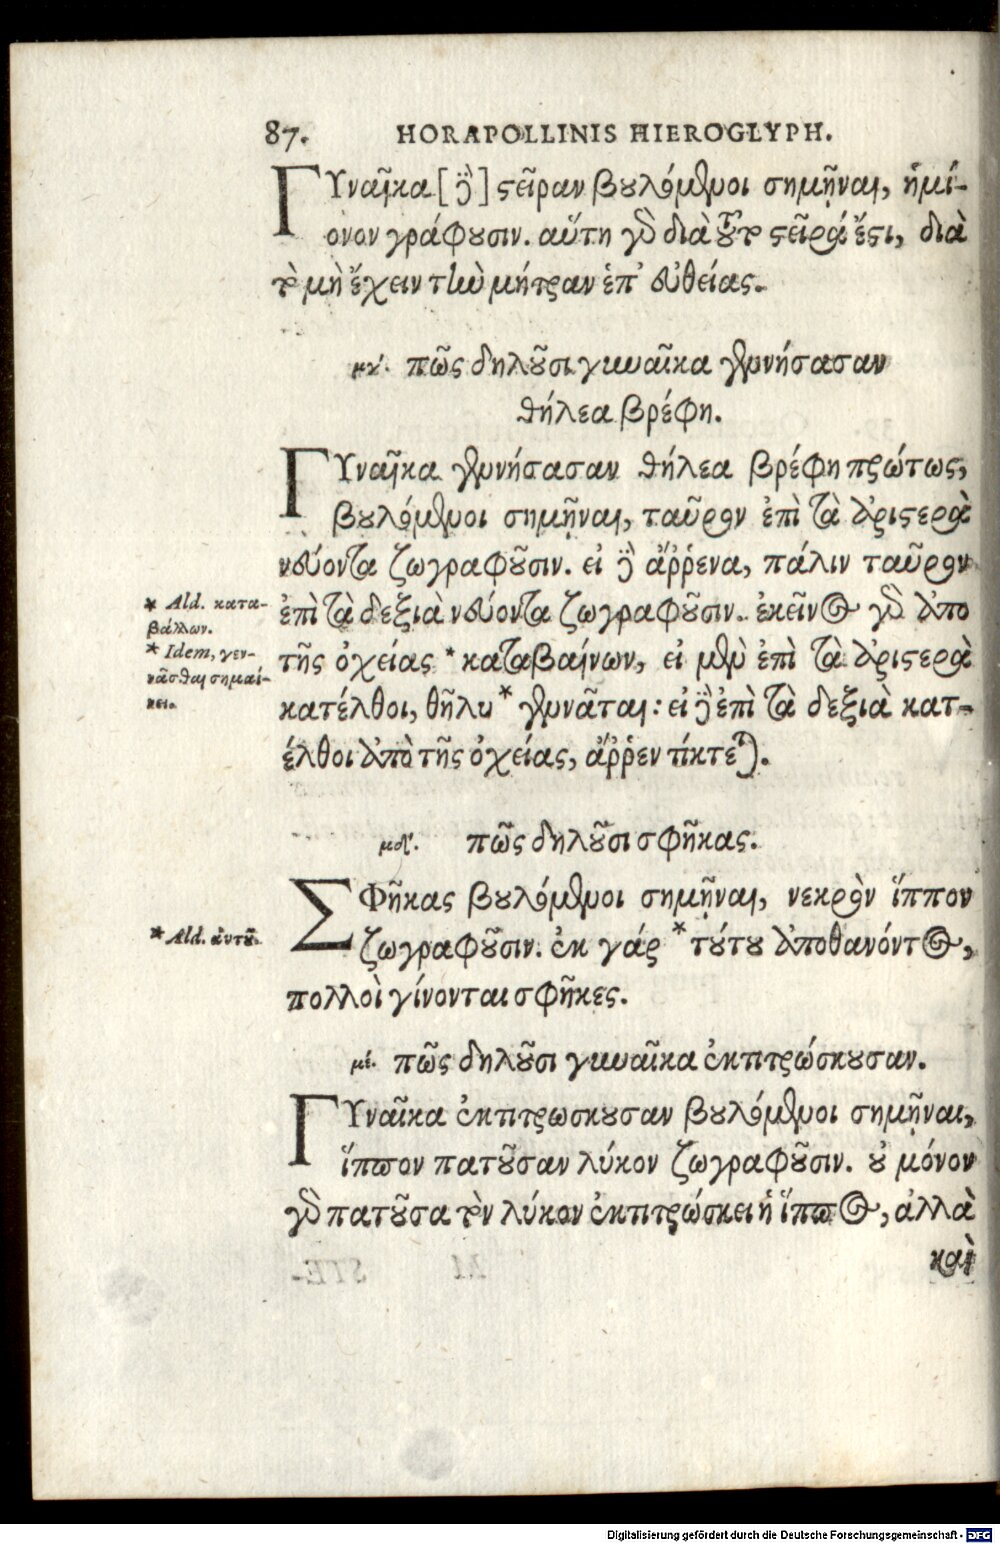 87. HORAPOLLINIS HIEROGLYPH.
ΓΥναῖκα [δὲ] στεῖραν βουλόμενοι σημῆναι, ἡμί-
ονον γράφουσιν. αὕτη γὸ διὰ τοῦτο στεῖρά ἔστι, διὰ
τὸ μὴ ἔχειν τὴν μήτραν ἐπ' εὐθείας.
μγ΄. πῶς δηλοῦσι γυναῖκα γεννήσασαν
θήλεα βρέφη.
ΓΥναῖκα γεννήσασαν θήλεα βρέφη πρώτως,
βουλόμενοι σημῆναι, ταῦρον ἐπὶ τὰ ἀριστερὰ
νεύοντα ζωγραφοῦσιν. εἰ δὲ ἄῤῥενα, πάλιν ταῦρον
* Ald. κατα-
βάλλων.
* Idem, γεν-
νᾶσθαι σημαί-
νει.
ἐπὶ τὰ δεξιὰ νεύοντα ζωγραφοῦσιν. ἐκεῖνος γὸ ἀπὸ
τῆς ὀχείας * καταβαίνων, εἰ μὲν ἐπὶ τὰ ἀριστερὰ
κατέλθοι, θῆλυ * γεννᾶται: εἰ δὲ ἐπὶ τὰ δεξιὰ κατ-
έλθοι ἀπὸ τῆς ὀχείας, ἄῤῥεν τίκτεται.
μδ΄. πῶς δηλοῦσι σφῆκας.
ΣΦῆκας βουλόμενοι σημῆναι, νεκρὸν ἵππον
* Ald. αὐτοῦ.
ζωγραφοῦσιν. ἐκ γάρ * τούτου ἀποθανόντος,
πολλοὶ γίνονται σφῆκες.
μέ. πῶς δηλοῦσι γυναῖκα ἐκτιτρώσκουσαν.
ΓΥναῖκα ἐκτιτρωσκουσαν βουλόμενοι σημῆναι,
ἵππον πατοῦσαν λύκον ζωγραφοῦσιν. οὐ μόνον
γὸ πατοῦσα τὸν λύκον ἐκτιτρώσκει ἡ ἵππος, ἀλλὰ
καὶ
Digitalisierung gefördert durch die Deutsche Forschungsgemeinschaft - DFG